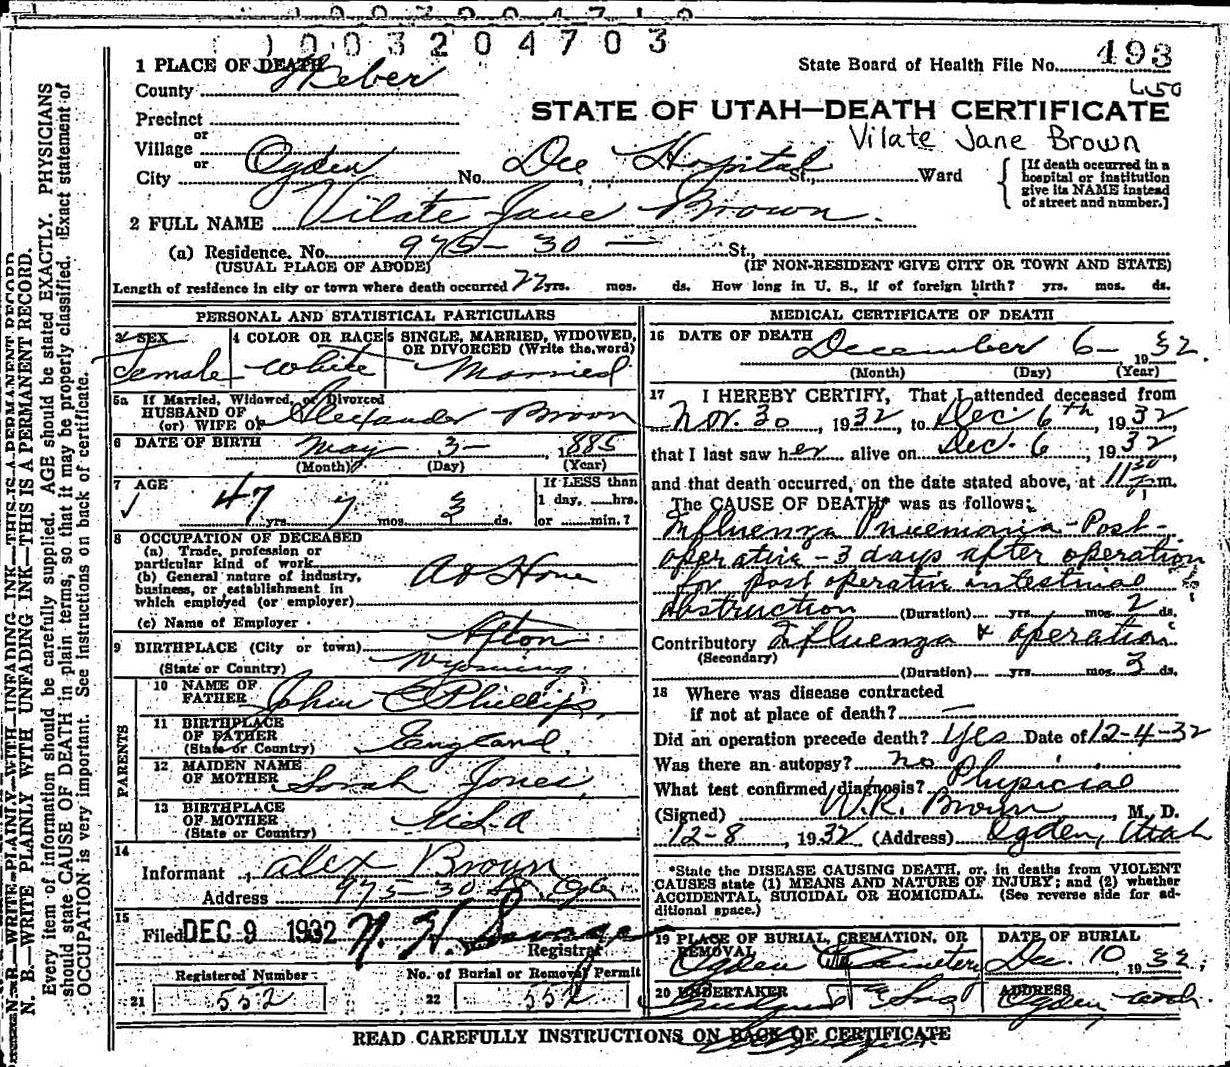 1003204703
1 PLACE OF DEATH
County Weber
State Board of Health File No. 493
650
Precinct
or
STATE OF UTAH—DEATH CERTIFICATE
Vilate Jane Brown
Village
or
City Ogden No. Dee Hospital St., Ward
[If death occurred in a
hospital or institution
give its NAME instead
of street and number.]
2 FULL NAME Vilate Jane Brown.
(a) Residence. No. 975 - 30 — St.,
(USUAL PLACE OF ABODE) (IF NON-RESIDENT GIVE CITY OR TOWN AND STATE)
Length of residence in city or town where death occurred 22 yrs. mos. ds. How long in U. S., if of foreign birth? yrs. mos. ds.
PERSONAL AND STATISTICAL PARTICULARS
3 SEX 4 COLOR OR RACE 5 SINGLE, MARRIED, WIDOWED,
OR DIVORCED (Write the word)
Female White Married
5a If Married, Widowed, or Divorced
HUSBAND OF
(or) WIFE OF Alexander Brown
6 DATE OF BIRTH May 3 - , 1885
(Month) (Day) (Year)
7 AGE If LESS than
1 day, hrs.
47 yrs. 7 mos. 3 ds. or min.?
8 OCCUPATION OF DECEASED
(a) Trade, profession or
particular kind of work
(b) General nature of industry,
business, or establishment in
which employed (or employer)
At Home
(c) Name of Employer
9 BIRTHPLACE (City or town) Afton
(State or Country) Wyoming.
PARENTS
10 NAME OF
FATHER John C Phillips,
11 BIRTHPLACE
OF FATHER
(State or Country) England.
12 MAIDEN NAME
OF MOTHER Sarah Jones,
13 BIRTHPLACE
OF MOTHER
(State or Country) U.S.A
14
Informant Alex Brown
Address 975 - 30 St, Ogd
15
Filed DEC 9 1932
Registrar
Registered Number No. of Burial or Removal Permit
21 552 22 552
MEDICAL CERTIFICATE OF DEATH
16 DATE OF DEATH December 6 - 1932.
(Month) (Day) (Year)
17 I HEREBY CERTIFY, That I attended deceased from
Nov. 30, 1932, to Dec. 6th, 1932
that I last saw her alive on Dec. 6, 1932,
and that death occurred, on the date stated above, at 11 30 P m.
The CAUSE OF DEATH* was as follows:
Influenza Pnuemonia - Post-
operative - 3 days after operation
for post operative intestinal
obstruction (Duration) yrs. mos. 2 ds.
Contributory Influenza & operation
(Secondary)
(Duration) yrs. mos. 3 ds.
18 Where was disease contracted
if not at place of death? —
Did an operation precede death? Yes Date of 12-4-32
Was there an autopsy? no
What test confirmed diagnosis? Physicial
(Signed) W.R. Brown, M. D.
12-8, 1932 (Address) Ogden, Utah
*State the DISEASE CAUSING DEATH, or, in deaths from VIOLENT
CAUSES state (1) MEANS AND NATURE OF INJURY; and (2) whether
ACCIDENTAL, SUICIDAL OR HOMICIDAL. (See reverse side for ad-
ditional space.)
19 PLACE OF BURIAL, CREMATION, OR
REMOVAL
DATE OF BURIAL
Ogden City Cemetery Dec. 10, 1932.
20 UNDERTAKER ADDRESS
Ogden, Utah.
READ CAREFULLY INSTRUCTIONS ON BACK OF CERTIFICATE
N. B.—WRITE PLAINLY WITH UNFADING INK—THIS IS A PERMANENT RECORD.
Every item of information should be carefully supplied. AGE should be stated EXACTLY. PHYSICIANS
should state CAUSE OF DEATH in plain terms, so that it may be properly classified. Exact statement of
OCCUPATION is very important. See instructions on back of certificate.